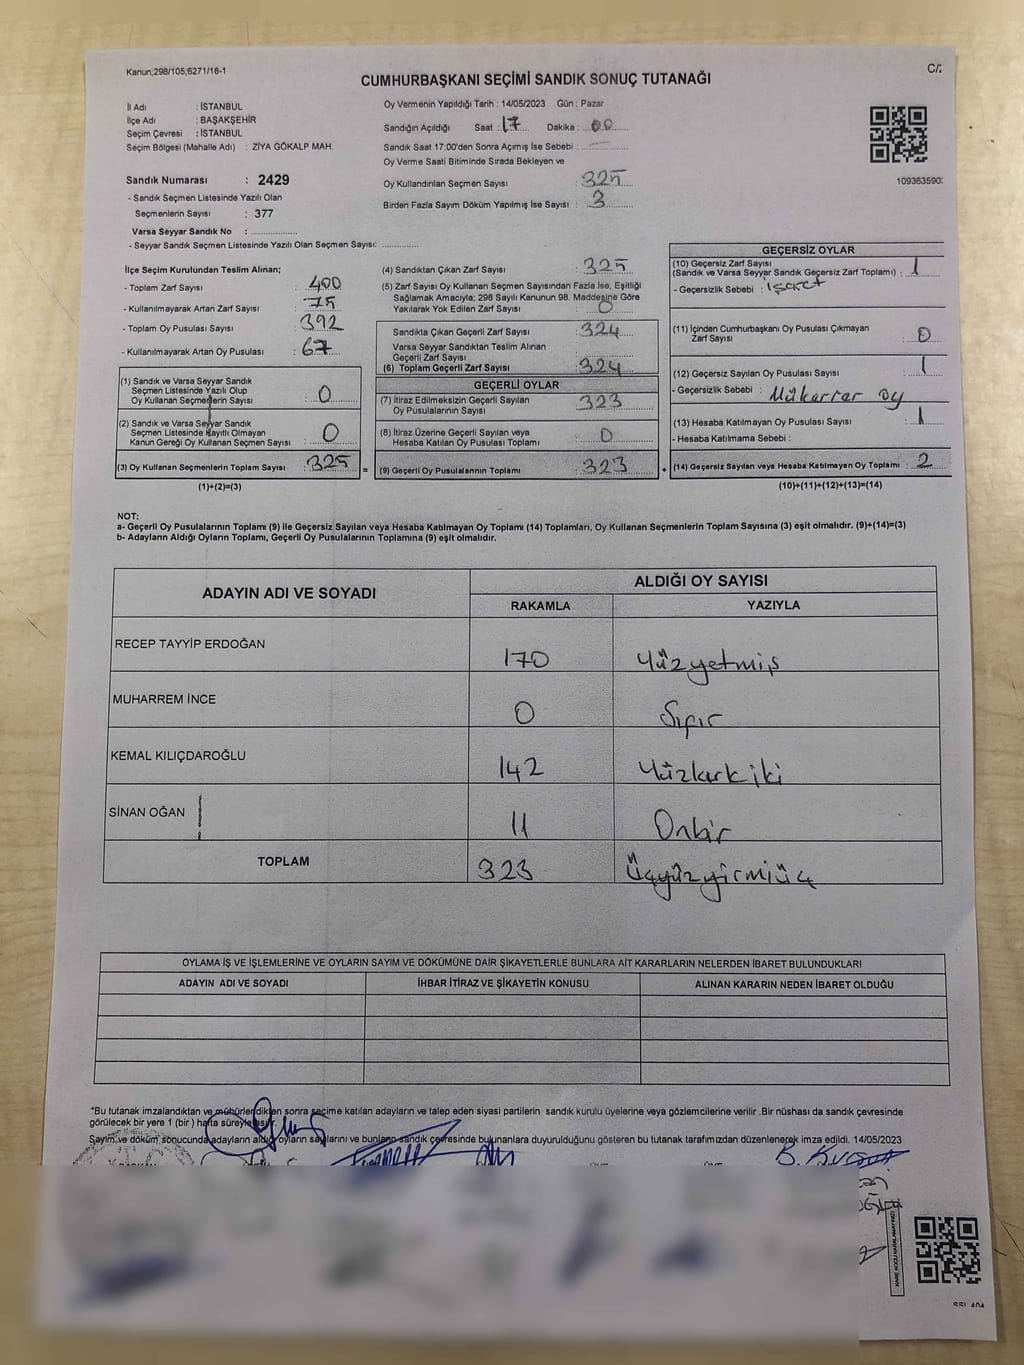 Kanun;298/105;6271/16-1
C/
CUMHURBAŞKANI SEÇİMİ SANDIK SONUÇ TUTANAĞI
İl Adı : İSTANBUL
İlçe Adı : BAŞAKŞEHİR
Seçim Çevresi : İSTANBUL
Seçim Bölgesi (Mahalle Adı) : ZİYA GÖKALP MAH.
Sandık Numarası : 2429
- Sandık Seçmen Listesinde Yazılı Olan
Seçmenlerin Sayısı : 377
Varsa Seyyar Sandık No : ..............
- Seyyar Sandık Seçmen Listesinde Yazılı Olan Seçmen Sayısı: ............
Oy Vermenin Yapıldığı Tarih : 14/05/2023 Gün : Pazar
Sandığın Açıldığı Saat : 17 Dakika : 00
Sandık Saat 17:00'den Sonra Açımış İse Sebebi :
Oy Verme Saati Bitiminde Sırada Bekleyen ve
Oy Kullandırılan Seçmen Sayısı : 325
Birden Fazla Sayım Döküm Yapılmış İse Sayısı : 3
109363590
İlçe Seçim Kurulundan Teslim Alınan;
- Toplam Zarf Sayısı : 400
- Kullanılmayarak Artan Zarf Sayısı : 75
- Toplam Oy Pusulası Sayısı : 392
- Kullanılmayarak Artan Oy Pusulası : 67
(1) Sandık ve Varsa Seyyar Sandık
Seçmen Listesinde Yazılı Olup
Oy Kullanan Seçmenlerin Sayısı : 0
(2) Sandık ve Varsa Seyyar Sandık
Seçmen Listesinde Kayıtlı Olmayan
Kanun Gereği Oy Kullanan Seçmen Sayısı : 0
(3) Oy Kullanan Seçmenlerin Toplam Sayısı : 325 =
(1)+(2)=(3)
(4) Sandıktan Çıkan Zarf Sayısı : 325
(5) Zarf Sayısı Oy Kullanan Seçmen Sayısından Fazla İse, Eşitliği
Sağlamak Amacıyla; 298 Sayılı Kanunun 98. Maddesine Göre
Yakılarak Yok Edilen Zarf Sayısı : 0
Sandıkta Çıkan Geçerli Zarf Sayısı : 324
Varsa Seyyar Sandıktan Teslim Alınan
Geçerli Zarf Sayısı :
(6) Toplam Geçerli Zarf Sayısı : 324
GEÇERLİ OYLAR
(7) İtiraz Edilmeksizin Geçerli Sayılan
Oy Pusulalarının Sayısı : 323
(8) İtiraz Üzerine Geçerli Sayılan veya
Hesaba Katılan Oy Pusulası Toplamı : 0
(9) Geçerli Oy Pusulalarının Toplamı : 323 +
GEÇERSİZ OYLAR
(10) Geçersiz Zarf Sayısı
(Sandık ve Varsa Seyyar Sandık Geçersiz Zarf Toplamı) : 1
- Geçersizlik Sebebi : işaret
(11) İçinden Cumhurbaşkanı Oy Pusulası Çıkmayan
Zarf Sayısı : 0
(12) Geçersiz Sayılan Oy Pusulası Sayısı : 1
- Geçersizlik Sebebi : Mükerrer oy
(13) Hesaba Katılmayan Oy Pusulası Sayısı : 1
- Hesaba Katılmama Sebebi :
(14) Geçersiz Sayılan veya Hesaba Katılmayan Oy Toplamı : 2
(10)+(11)+(12)+(13)=(14)
NOT:
a- Geçerli Oy Pusulalarının Toplamı (9) ile Geçersiz Sayılan veya Hesaba Katılmayan Oy Toplamı (14) Toplamları, Oy Kullanan Seçmenlerin Toplam Sayısına (3) eşit olmalıdır. (9)+(14)=(3)
b- Adayların Aldığı Oyların Toplamı, Geçerli Oy Pusulalarının Toplamına (9) eşit olmalıdır.
ADAYIN ADI VE SOYADI ALDIĞI OY SAYISI
RAKAMLA YAZIYLA
RECEP TAYYİP ERDOĞAN 170 Yüzyetmiş
MUHARREM İNCE 0 Sıfır
KEMAL KILIÇDAROĞLU 142 Yüzkırkiki
SİNAN OĞAN 11 Onbir
TOPLAM 323 Üçyüzyirmiüç
OYLAMA İŞ VE İŞLEMLERİNE VE OYLARIN SAYIM VE DÖKÜMÜNE DAİR ŞİKAYETLERLE BUNLARA AİT KARARLARIN NELERDEN İBARET BULUNDUKLARI
ADAYIN ADI VE SOYADI İHBAR İTİRAZ VE ŞİKAYETİN KONUSU ALINAN KARARIN NEDEN İBARET OLDUĞU
*Bu tutanak imzalandıktan ve mühürlendikten sonra seçime katılan adayların ve talep eden siyasi partilerin sandık kurulu üyelerine veya gözlemcilerine verilir .Bir nüshası da sandık çevresinde
görülecek bir yere 1 (bir ) hafta süreyle asılır.
Sayım ve döküm sonucunda adayların aldığı oyların sayılarını ve bunların sandık çevresinde bulunanlara duyurulduğunu gösteren bu tutanak tarafımızdan düzenlenerek imza edildi. 14/05/2023